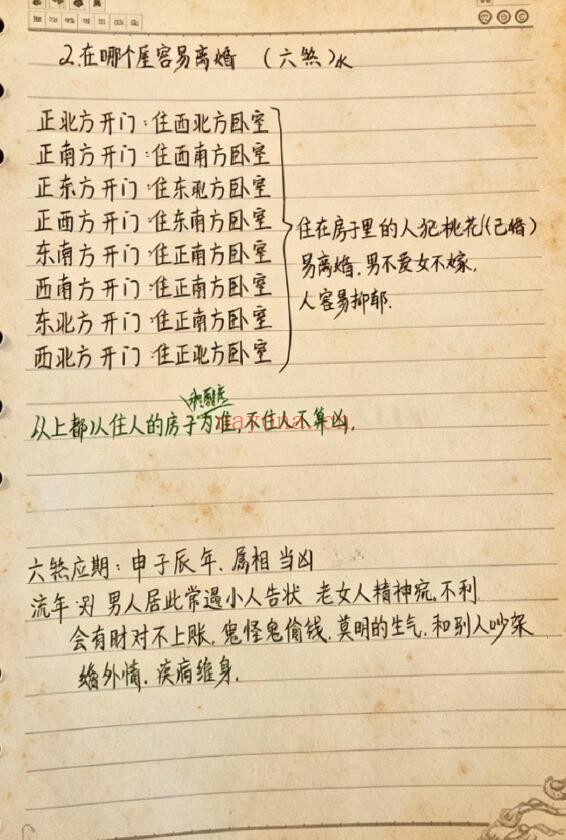 2.在哪个屋容易离婚 （六煞）水
正北方开门：住西北方卧室
正南方开门：住西南方卧室
正东方开门：住东北方卧室
正西方开门：住东南方卧室
东南方开门：住正南方卧室
西南方开门：住正南方卧室
东北方开门：住正南方卧室
西北方开门：住正北方卧室
住在房子里的人犯桃花(已婚)
易离婚.男不爱女不嫁.
人容易抑郁.
以上都以住人的房子为准,不住人不算凶.
六煞应期：申子辰年.属相当凶
流年：男人居此常遇小人告状 老女人精神病.不利
会有时对不上账.鬼怪鬼偷钱.莫明的生气.和别人吵架
婚外情.疾病缠身.